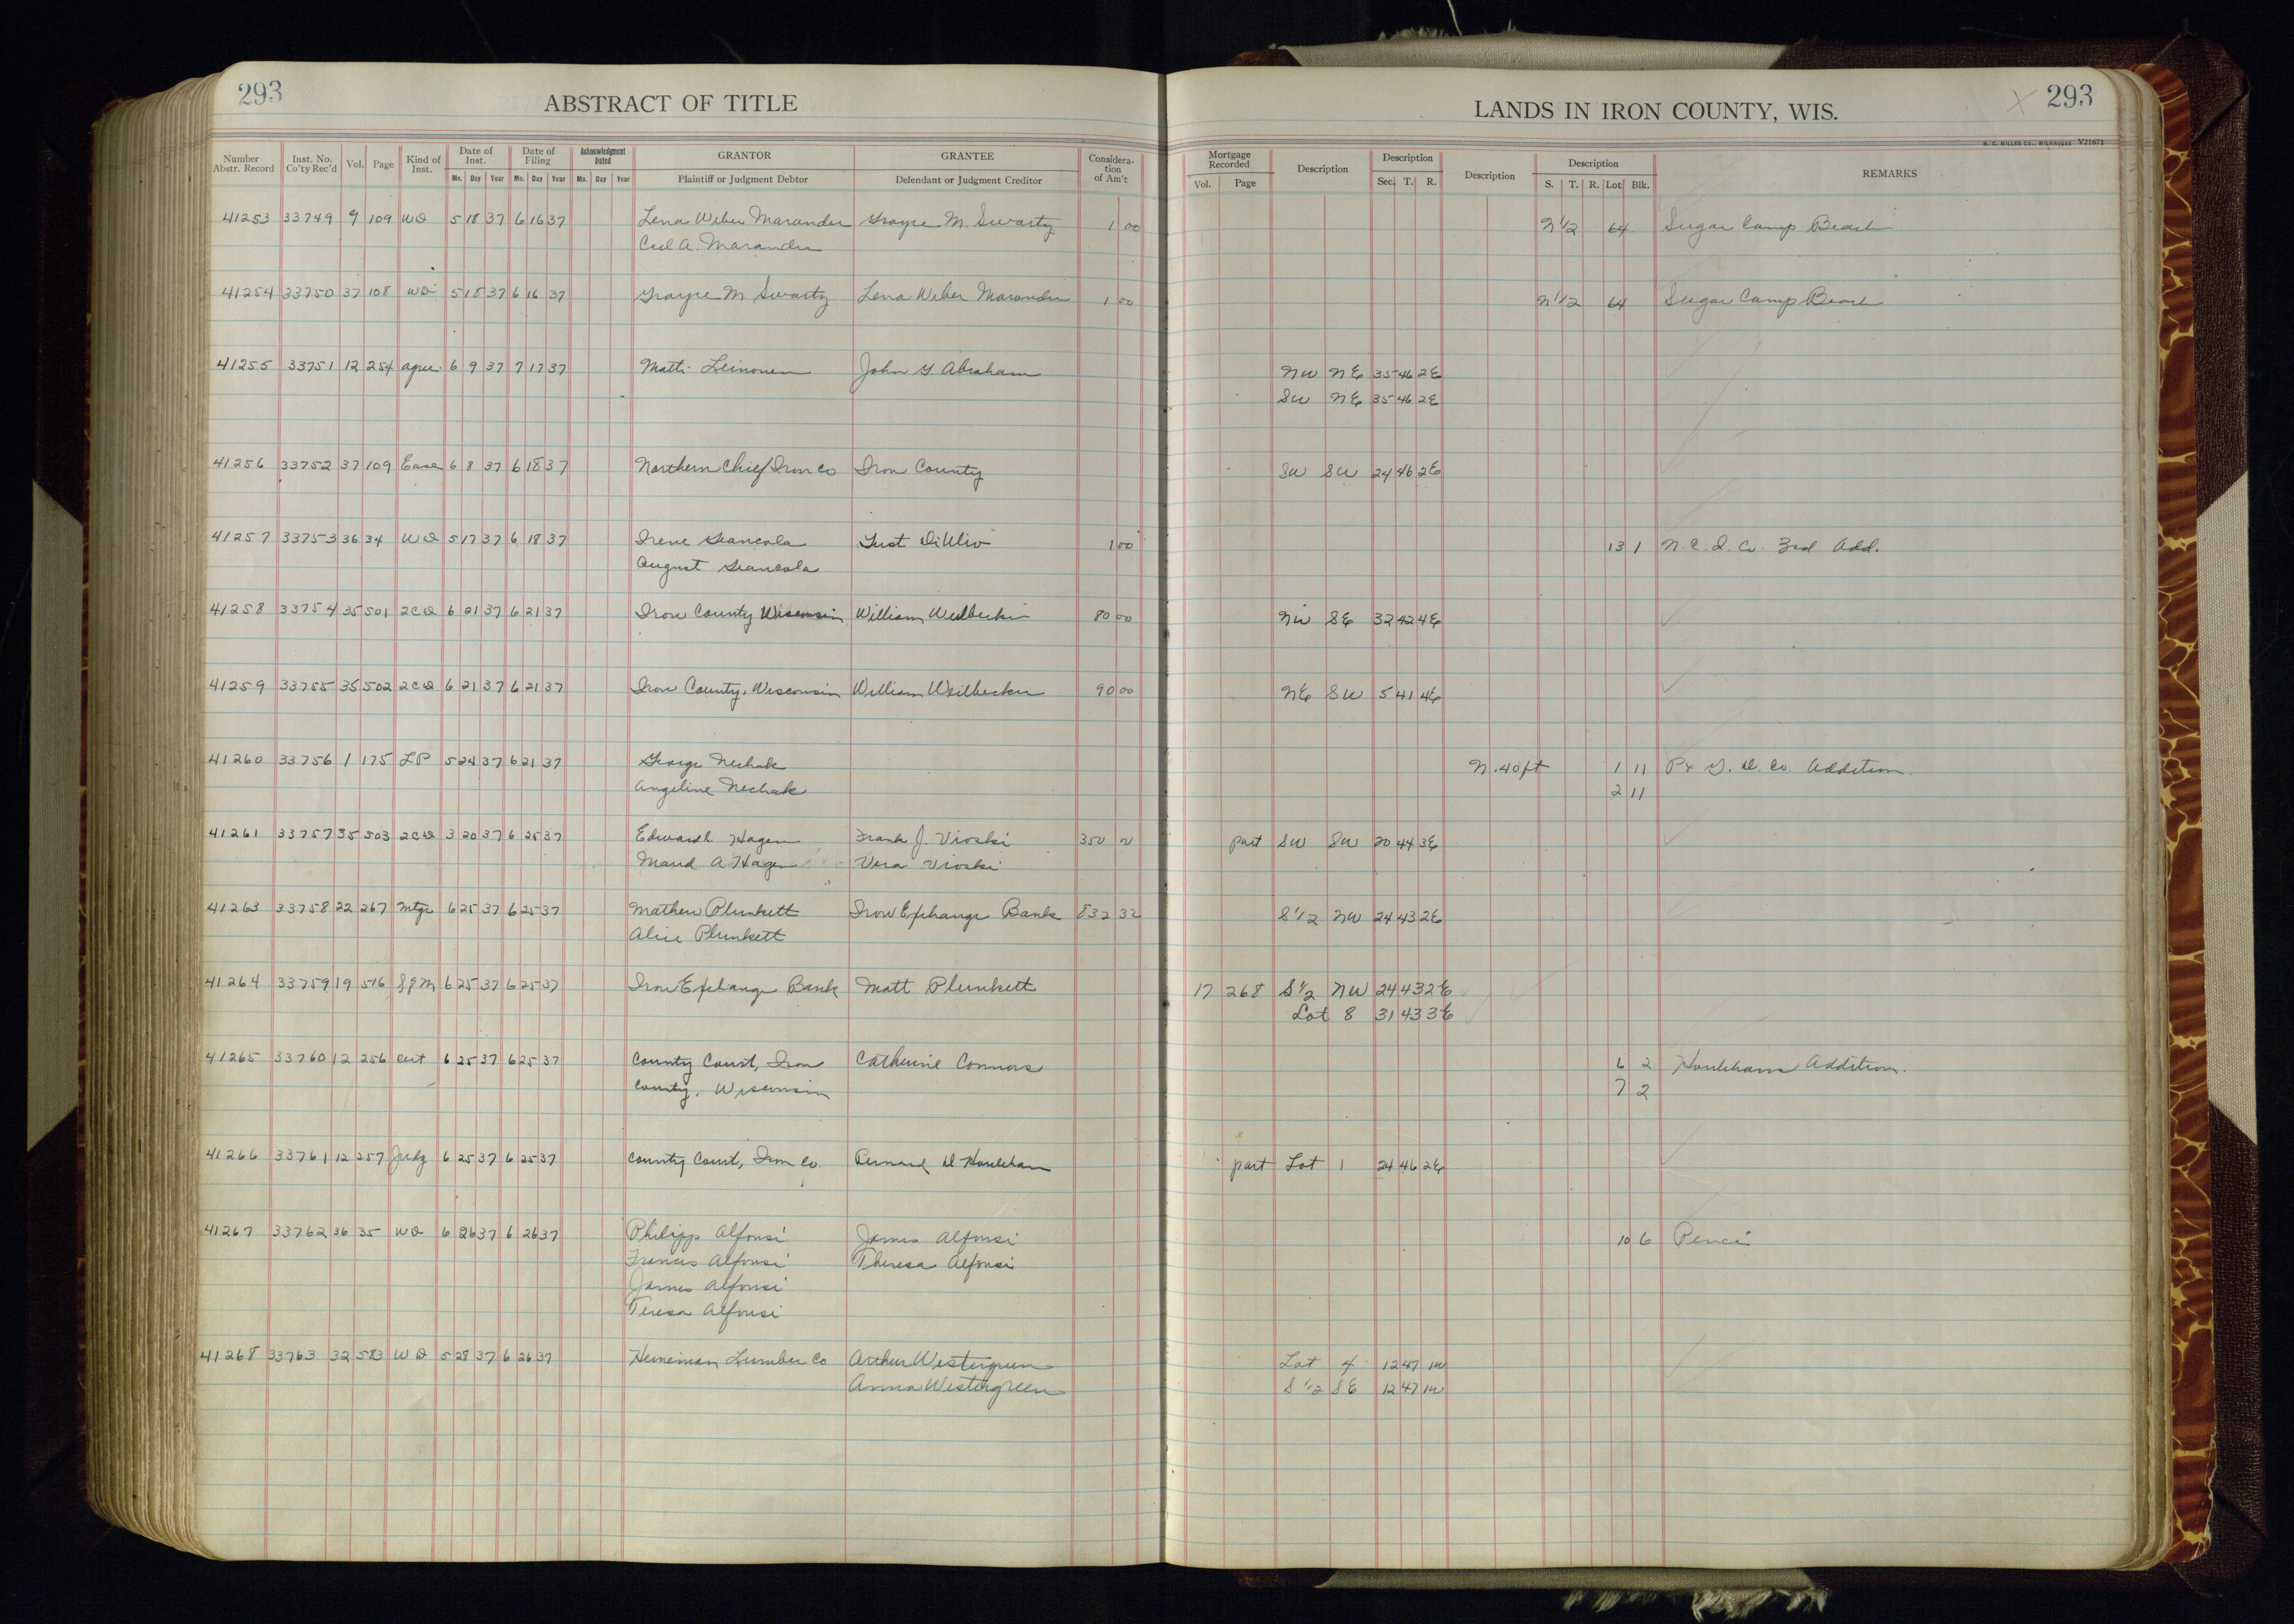 293 ABSTRACT OF TITLE
LANDS IN IRON COUNTY, WIS. X 293
H. C. MILLER CO., MILWAUKEE V21671
Number Abstr. Record Inst. No. Co'ty Rec'd Vol. Page Kind of Inst. Date of Inst. Date of Filing Acknowledgment Dated GRANTOR GRANTEE Considera-tion of Am't Mortgage Recorded Description Description Description Description REMARKS
Mo. Day Year Mo. Day Year Mo. Day Year Plaintiff or Judgment Debtor Defendant or Judgment Creditor Vol. Page Sec. T. R. S. T. R. Lot Blk.
41253 33749 9 109 WD 5 18 37 6 16 37 Lena Weber Marander Grayce M. Swartz 1 00 N 1/2 64 Sugar Camp Beach
Carl A. Marander
41254 33750 37 108 WD 5 18 37 6 16 37 Grayce M Swartz Lena Weber Marander 1 00 N 1/2 64 Sugar Camp Beach
41255 33751 12 254 agree 6 9 37 7 17 37 Matti Leinonen John G. Abraham NW NE 35 46 2E
SW NE 35 46 2E
41256 33752 37 109 Ease 6 8 37 6 18 37 Northern Chief Iron Co Iron County SW SW 24 46 2E
41257 33753 36 34 WD 5 17 37 6 18 37 Irene Giancola Just DiUlio 1 00 13 1 N. C. I. Co. 3rd Add.
August Giancola
41258 33754 35 501 2CD 6 21 37 6 21 37 Iron County Wisconsin William 80 00 NW SE 32 42 4E
41259 33755 35 502 2CD 6 21 37 6 21 37 Iron County, Wisconsin William Weilbecker 90 00 NE SW 5 41 4E
41260 33756 1 175 LP 5 24 37 6 21 37 George Nechak N. 40 ft 1 11 P & G. D. Co. Addition.
Angeline Nechak 2 11
41261 33757 35 503 2CD 3 20 37 6 25 37 Edward L Hagen Frank J. Vioski 350 part SW SW 20 44 3E
Maud A Hagen Vera Vioski
41263 33758 22 267 Mtge 6 25 37 6 25 37 Mathew Plunkett Iron Exchange Bank 832 32 S 1/2 NW 24 43 2E
Alice Plunkett
41264 33759 19 516 SgM 6 25 37 6 25 37 Iron Exchange Bank Matt Plunkett 17 268 S 1/2 NW 24 43 2E
Lot 8 31 43 3E
41265 33760 12 256 cert 6 25 37 6 25 37 County Court, Iron Catherine Connors 6 2 Houlehans Addition.
County, Wisconsin 7 2
41266 33761 12 257 Judg 6 25 37 6 25 37 County Court, Iron Co Bernard D Houlehan part Lot 1 24 46 2E
41267 33762 36 35 WD 6 26 37 6 26 37 Philipp Alfonsi James Alfonsi 10 6 Pence
Francis Alfonsi Theresa Alfonsi
James Alfonsi
Teresa Alfonsi
41268 33763 32 583 WD 5 28 37 6 26 37 Heineman Lumber Co Arthur Westergreen Lot 4 12 47 1W
Anna Westergreen S 1/2 SE 12 47 1W